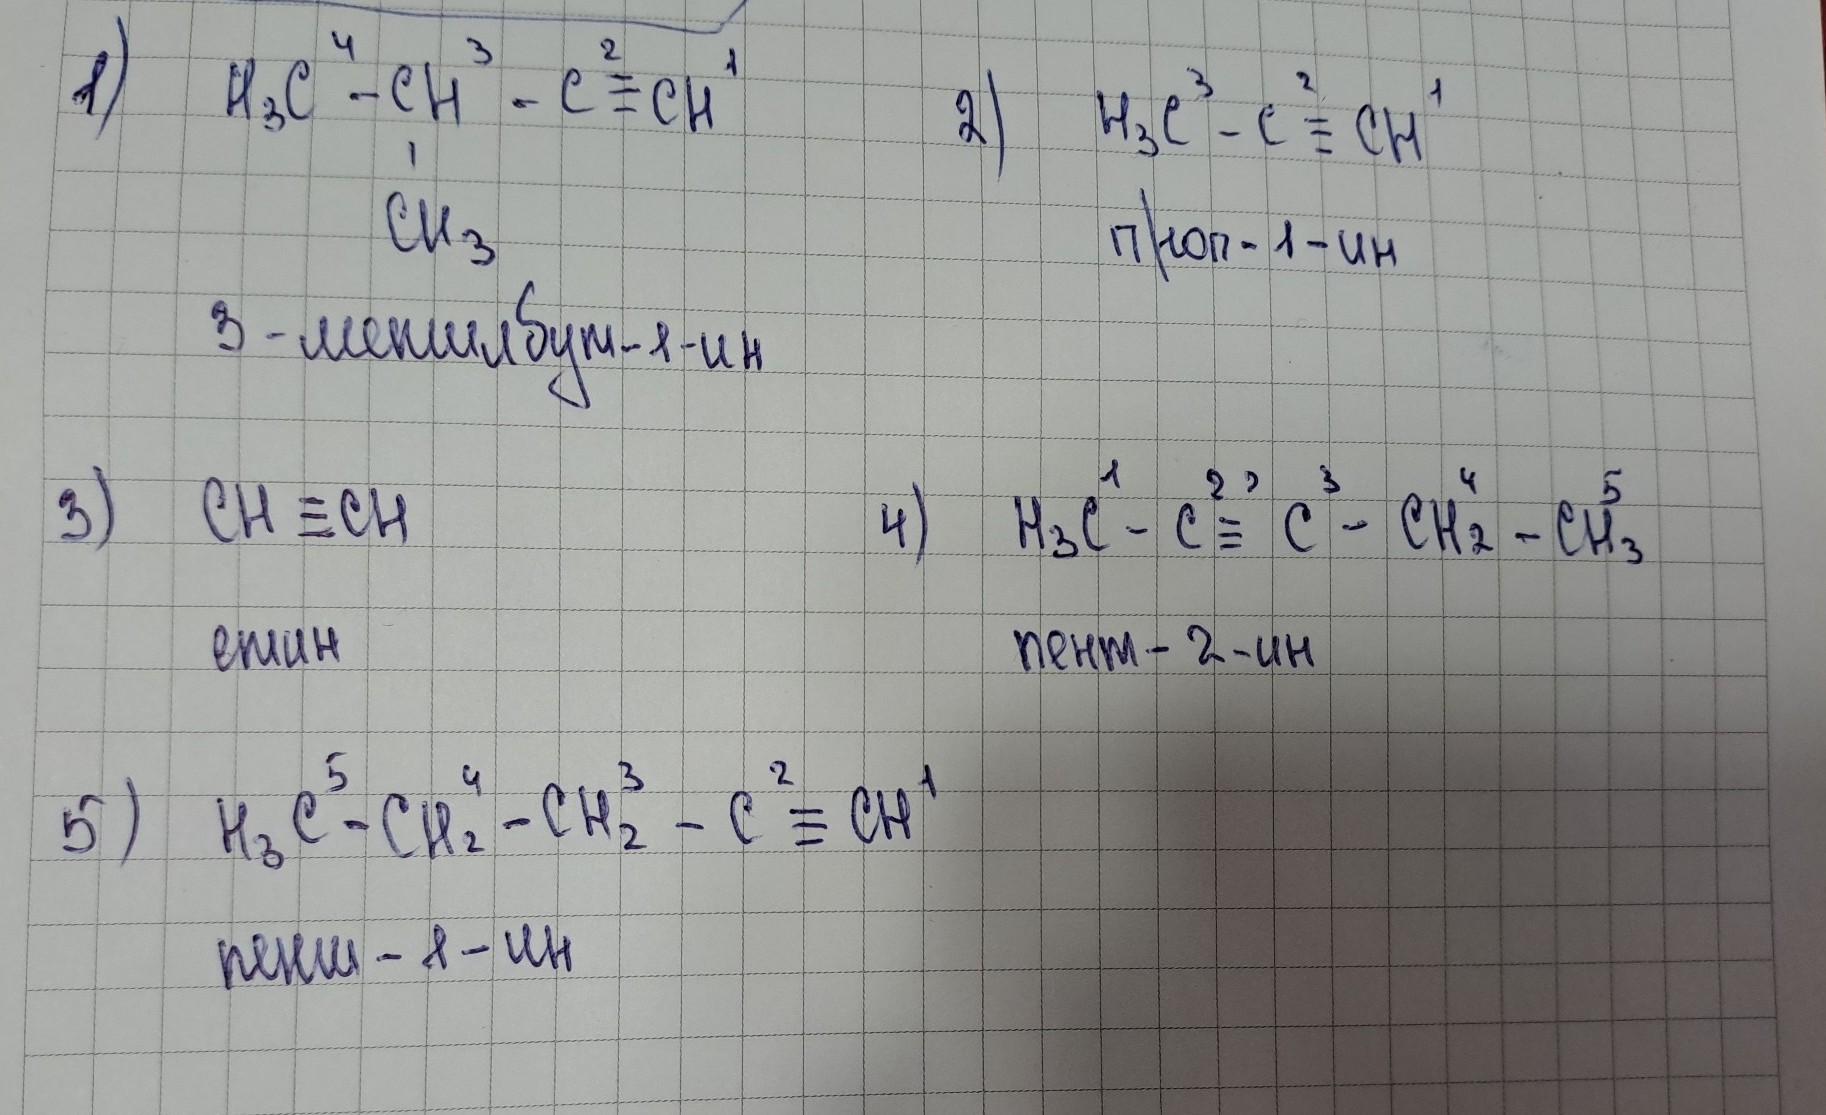 1) H₃C⁴ - CH³ - C² ≡ CH¹
CH₃
3 - метилбут - 1 - ин
2) H₃C³ - C² ≡ CH¹
проп - 1 - ин
3) CH ≡ CH
етин
4) H₃C¹ - C² ≡ C³ - CH₂⁴ - CH₃⁵
пент - 2 - ин
5) H₃C⁵ - CH₂⁴ - CH₂³ - C² ≡ CH¹
пент - 1 - ин